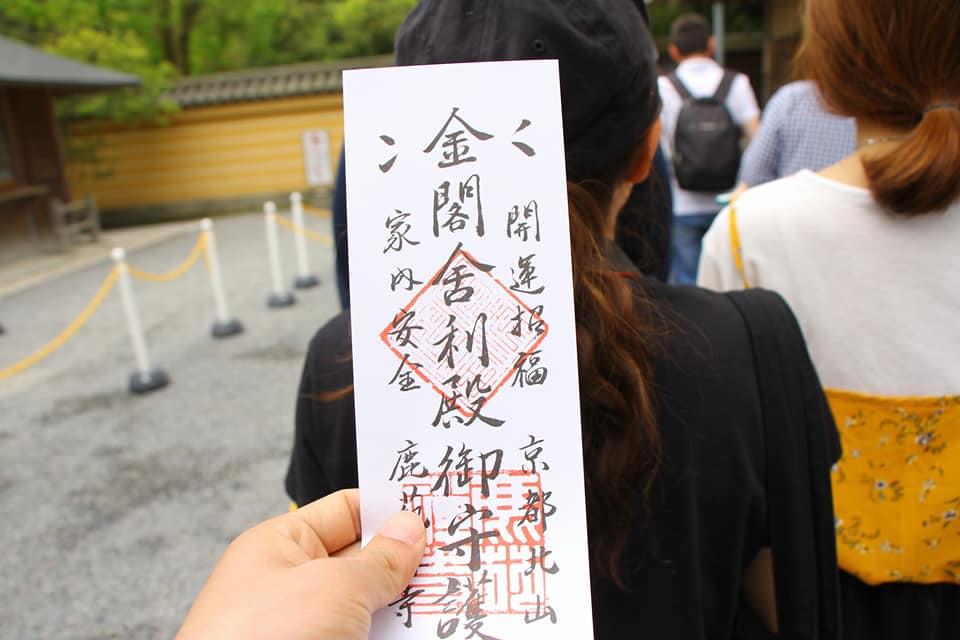 開運招福
京都北山
金閣舎利殿御守護
家内安全
鹿苑寺